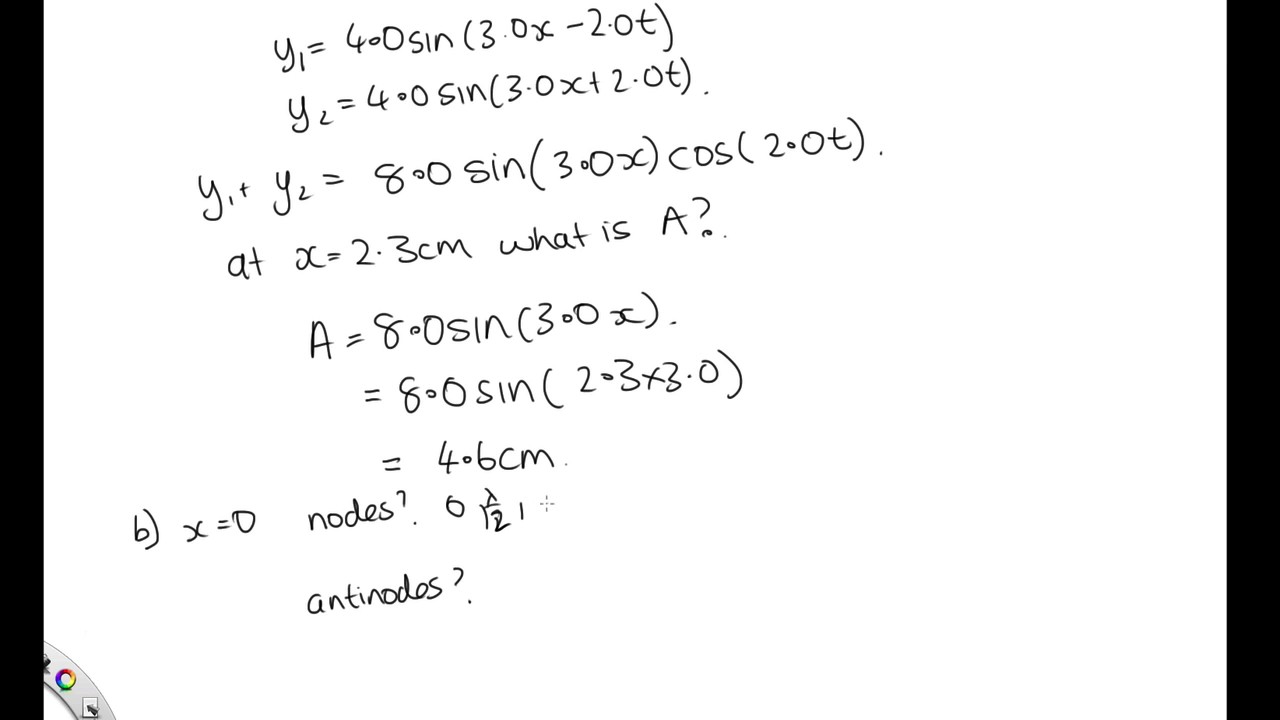 y₁ = 4.0 sin(3.0x - 2.0t)
y₂ = 4.0 sin(3.0x + 2.0t).
y₁ + y₂ = 8.0 sin(3.0x) cos(2.0t).
at x = 2.3cm what is A?
A = 8.0 sin(3.0x).
= 8.0 sin(2.3×3.0)
= 4.6cm.
b) x=0 nodes? 0 λ/2 1
antinodes?